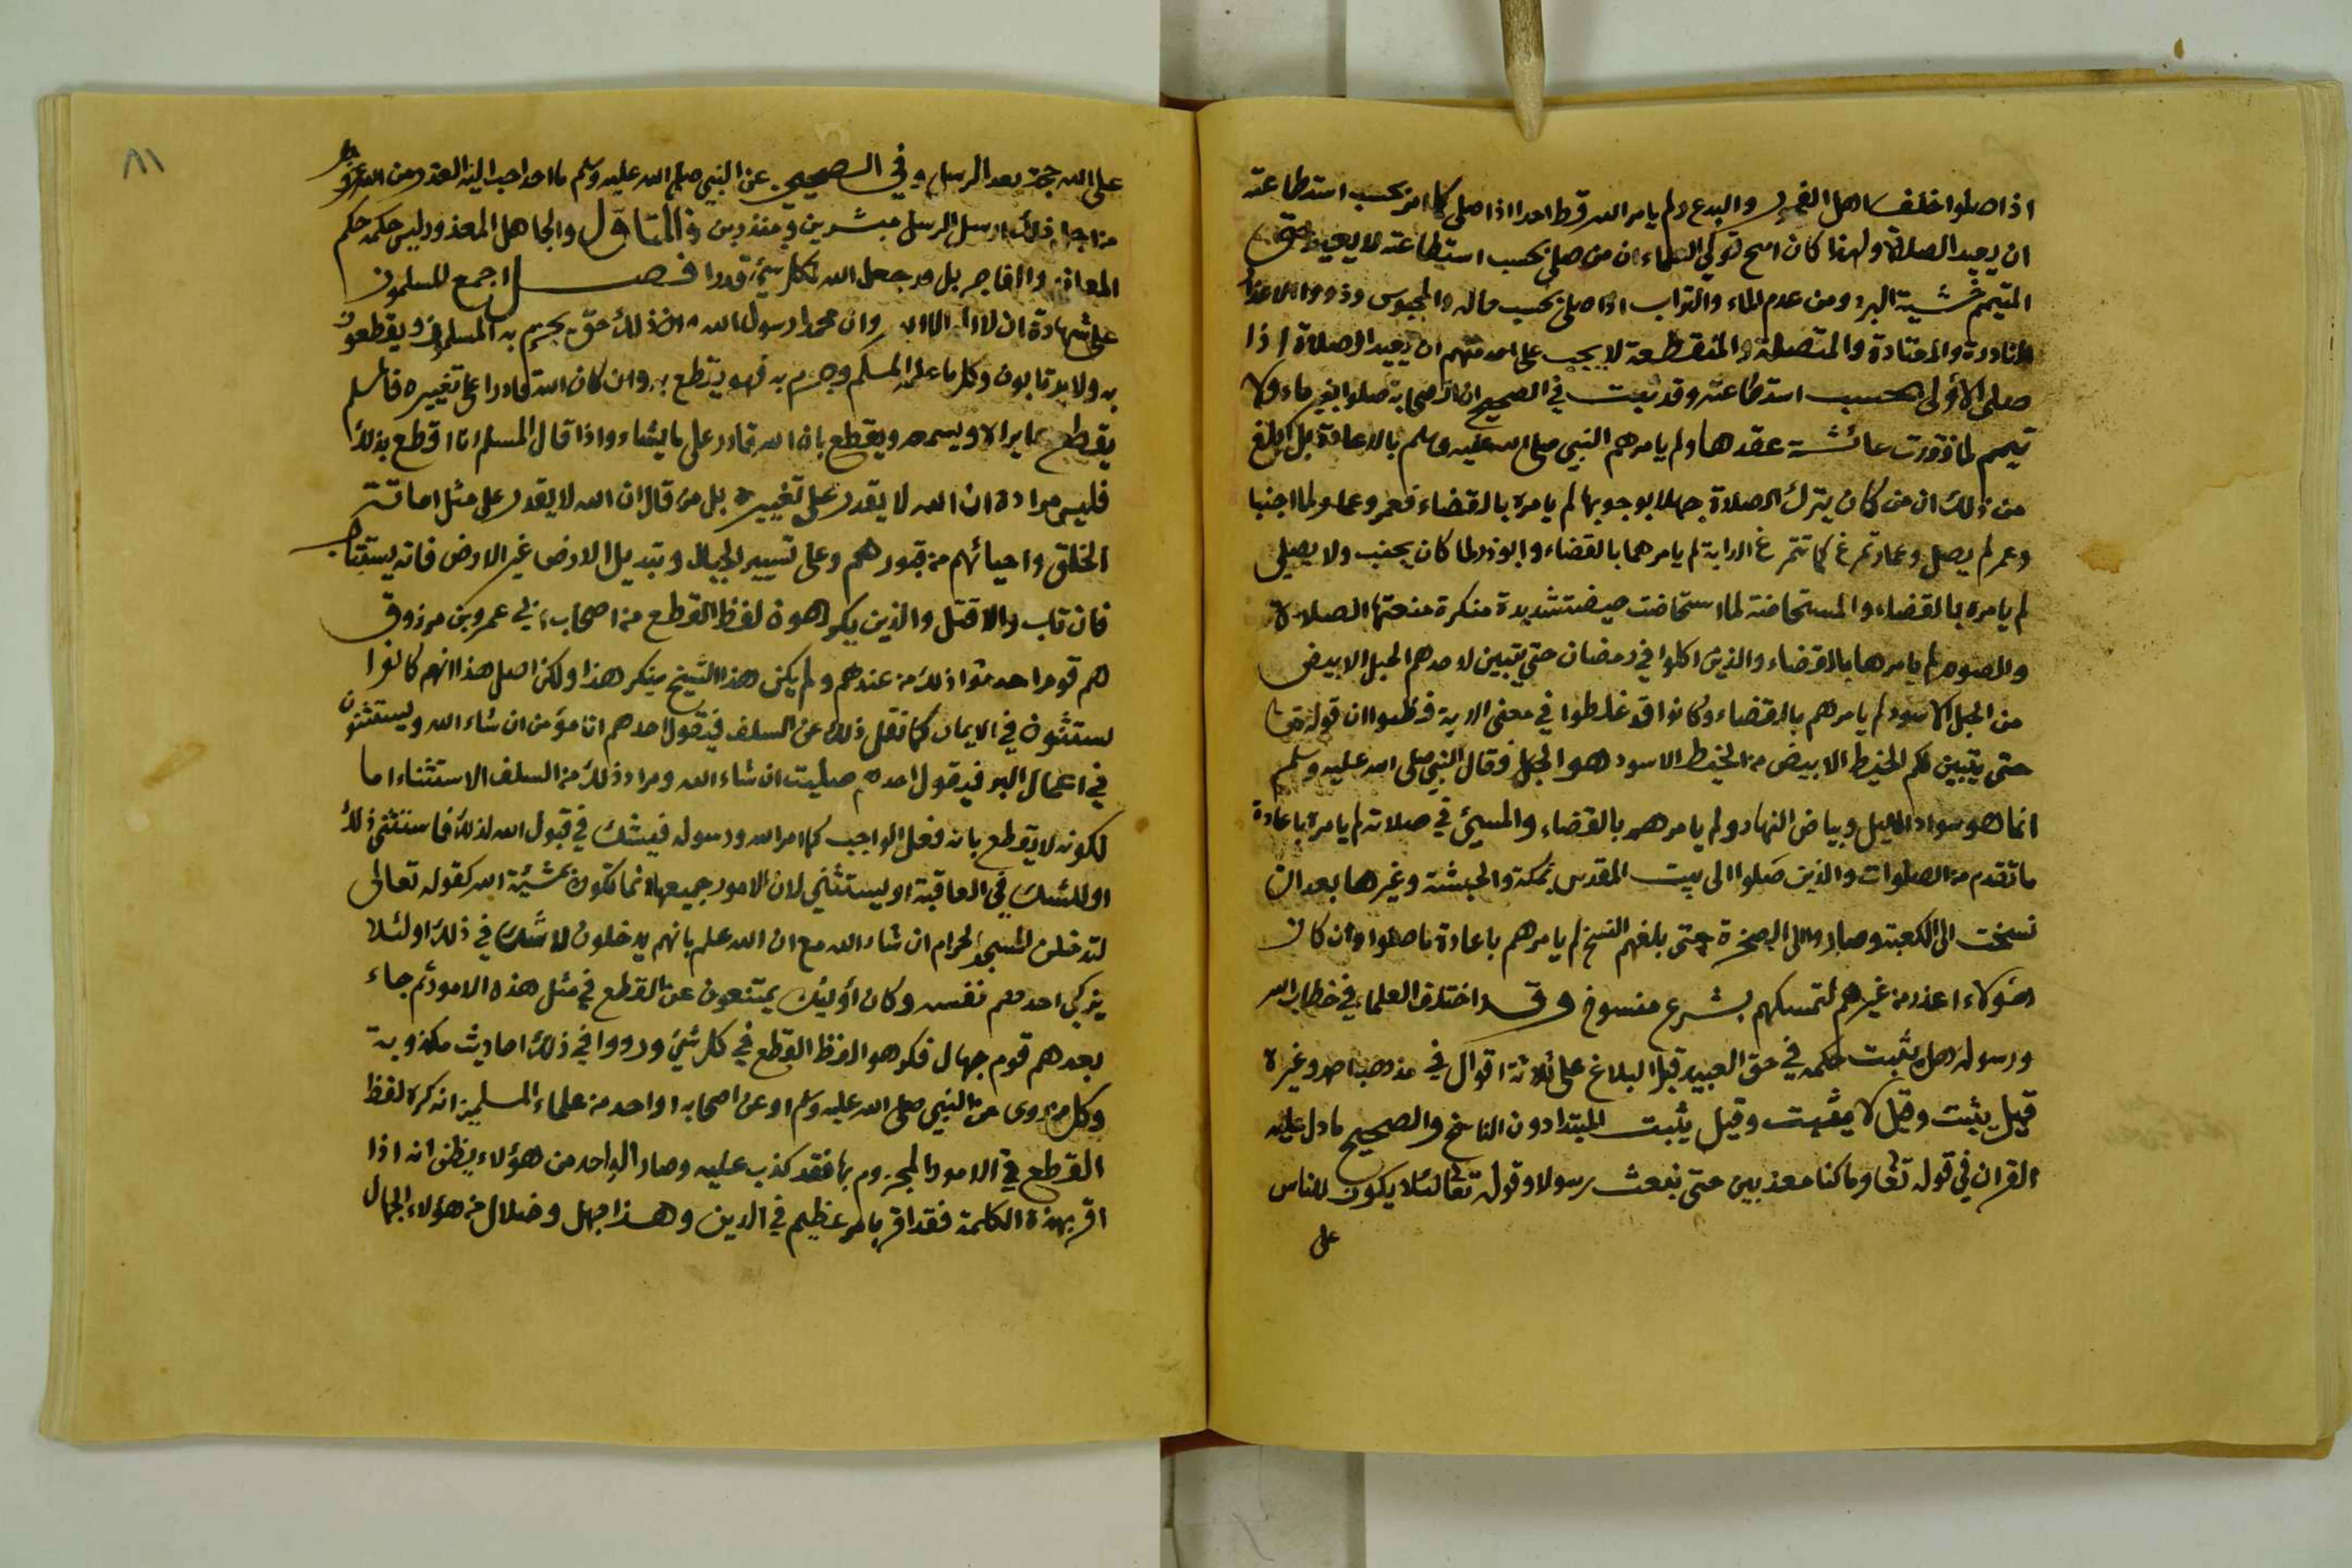 اذا صلوا خلف اهل الفجور والبدع ولم يامر الله قط احدا اذا صلى كما امر بحسب استطاعته
ان يعيد الصلاة ولهذا كان اصح قولي العلماء ان من صلى بحسب استطاعته لا يعيد حتى
المتيمم خشية البرد ومن عدم الماء والتراب اذا صلى بحسب حاله والمحبوس وذووا الاعذار
النادرة والمعتادة والمتصلة والمنقطعة لا يجب على احد منهم ان يعيد الصلاة اذا
صلى الأولى بحسب استطاعته وقد ثبت في الصحيح ان الصحابة صلوا بغير ماء ولا
تيمم لما فقدت عائشة عقدها ولم يامرهم النبي صلى الله عليه وسلم بالاعادة بل ابلغ
من ذلك ان من كان يترك الصلاة جهلا بوجوبها لم يامره بالقضاء فعمر وعمار لما اجنبا
وعمر لم يصل وعمار تمرغ كما تتمرغ الدابة لم يامرهما بالقضاء وابو ذر لما كان يجنب ولا يصلي
لم يامره بالقضاء والمستحاضة لما استحاضت حيضة شديدة منكرة منعتها الصلاة
والصوم لم يامرها بالقضاء والذين اكلوا في رمضان حتى يتبين لاحدهم الحبل الابيض
من الحبل الاسود لم يامرهم بالقضاء وكانوا قد غلطوا في معنى الاية فظنوا ان قوله تعالى
حتى يتبين لكم الخيط الابيض من الخيط الاسود هو الحبل فقال النبي صلى الله عليه وسلم
انما هو سواد الليل وبياض النهار ولم يامرهم بالقضاء والمسيئ في صلاته لم يامره باعادة
ما تقدم من الصلوات والذين صلوا الى بيت المقدس بمكة والحبشة وغيرها بعد ان
نسخت الى الكعبة وصاروا الى الصخرة حتى بلغهم النسخ لم يامرهم باعادة ما صلوا وان كان
هؤلاء اعذر من غيرهم لتمسكهم بشرع منسوخ وقد اختلف العلماء في خطاب الله
ورسوله هل يثبت حكمه في حق العبيد قبل البلاغ على ثلاثة اقوال في مذهب احمد وغيره
قيل يثبت وقيل لا يثبت وقيل يثبت المبتدا دون الناسخ والصحيح ما دل عليه
القران في قوله تعالى وما كنا معذبين حتى نبعث رسولا وقوله تعالى لئلا يكون للناس
على
٨١
على الله حجة بعد الرسل وفي الصحيح عن النبي صلى الله عليه وسلم ما احد احب اليه العذر من الله عز وجل
من اجل ذلك ارسل الرسل مبشرين ومنذرين فالمتاول والجاهل المعذور ليس حكمه حكم
المعاند والفاجر بل قد جعل الله لكل شيء قدرا فصل اجمع المسلمون
على شهادة ان لا اله الا الله وان محمدا رسول الله وان ذلك حق يجزم به المسلمون ويقطعون
به ولا يرتابون وكل ما علمه المسلم وجزم به فهو يقطع به وان كان الله قادرا على تغييره فالمسلم
يقطع بما يراه ويسمعه ويقطع بان الله قادر على ما يشاء واذا قال المسلم انا اقطع بذلك
فليس مراده ان الله لا يقدر على تغييره بل من قال ان الله لا يقدر على مثل اماتة
الخلق واحيائهم من قبورهم وعلى تسيير الجبال وتبديل الارض غير الارض فانه يستتاب
فان تاب والا قتل والذين يكرهون لفظ القطع من اصحاب ابي عمرو بن مرزوق
هم قوم احدثوا ذلك من عندهم ولم يكن هذا الشيخ ينكر هذا ولكن اصل هذا انهم كانوا
يستثنون في الايمان كما نقل ذلك عن السلف فيقول احدهم انا مؤمن ان شاء الله ويستثنون
في اعمال البر فيقول احدهم صليت ان شاء الله ومراد ذلك من السلف الاستثناء اما
لكونه لا يقطع بانه فعل الواجب كما امر الله ورسوله فيشك في قبول الله لذلك فاستثنى ذلك
او للشك في العاقبة او يستثني لان الامور جميعها انما تكون بمشيئة الله كقوله تعالى
لتدخلن المسجد الحرام ان شاء الله مع ان الله علم بانهم يدخلون لا شك في ذلك او لئلا
يزكي احدهم نفسه وكان أوليك يمتنعون عن القطع في مثل هذه الامور ثم جاء
بعدهم قوم جهال فكرهوا لفظ القطع في كل شيئ ورووا في ذلك احاديث مكذوبة
وكل من روى عن النبي صلى الله عليه وسلم او عن اصحابه او احد من علماء المسلمين انه كره لفظ
القطع في الامور المجزوم بها فقد كذب عليه وصار الواحد من هؤلاء يظن انه اذا
اقر بهذه الكلمة فقد اقر بامر عظيم في الدين وهذا جهل وضلال من هؤلاء الجهال